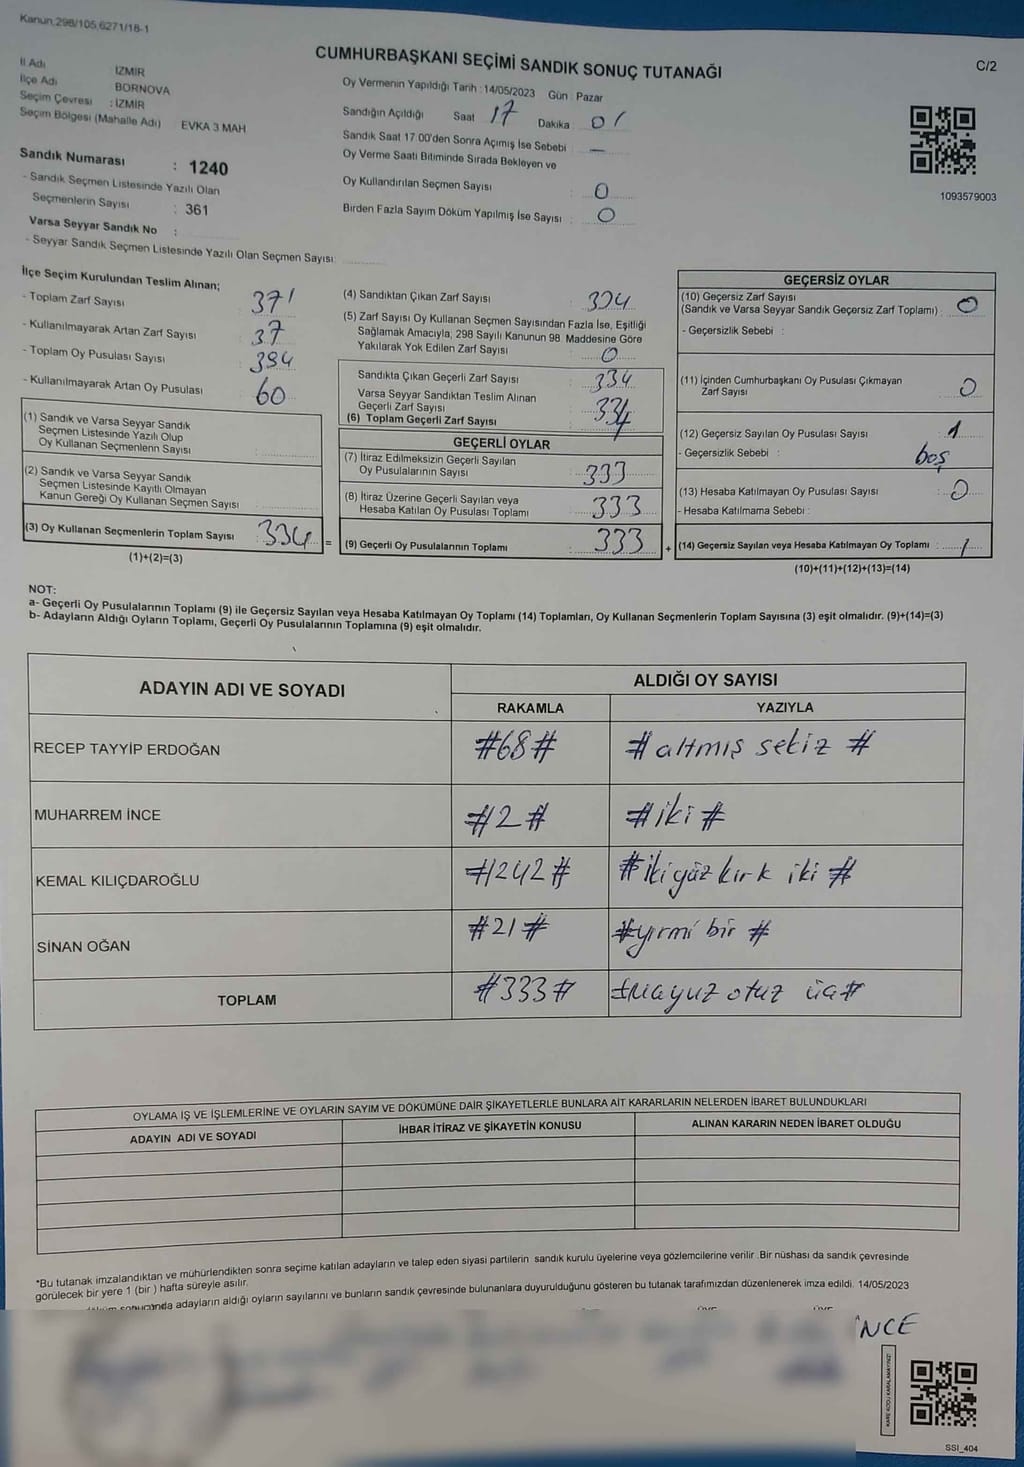 Kanun,298/105,6271/18-1
CUMHURBAŞKANI SEÇİMİ SANDIK SONUÇ TUTANAĞI
C/2
İl Adı İZMİR
İlçe Adı BORNOVA
Seçim Çevresi : İZMİR
Seçim Bölgesi (Mahalle Adı) EVKA 3 MAH.
Sandık Numarası : 1240
- Sandık Seçmen Listesinde Yazılı Olan
Seçmenlerin Sayısı : 361
Varsa Seyyar Sandık No :
- Seyyar Sandık Seçmen Listesinde Yazılı Olan Seçmen Sayısı
Oy Vermenin Yapıldığı Tarih : 14/05/2023 Gün : Pazar
Sandığın Açıldığı Saat 17 Dakika 01
Sandık Saat 17.00'den Sonra Açımış İse Sebebi : —
Oy Verme Saati Bitiminde Sırada Bekleyen ve
Oy Kullandırılan Seçmen Sayısı : 0
Birden Fazla Sayım Döküm Yapılmış İse Sayısı : 0
1093579003
İlçe Seçim Kurulundan Teslim Alınan;
- Toplam Zarf Sayısı 371
- Kullanılmayarak Artan Zarf Sayısı 37
- Toplam Oy Pusulası Sayısı 394
- Kullanılmayarak Artan Oy Pusulası 60
(1) Sandık ve Varsa Seyyar Sandık
Seçmen Listesinde Yazılı Olup
Oy Kullanan Seçmenlerin Sayısı :
(2) Sandık ve Varsa Seyyar Sandık
Seçmen Listesinde Kayıtlı Olmayan
Kanun Gereği Oy Kullanan Seçmen Sayısı :
(3) Oy Kullanan Seçmenlerin Toplam Sayısı : 334 =
(1)+(2)=(3)
(4) Sandıktan Çıkan Zarf Sayısı : 334
(5) Zarf Sayısı Oy Kullanan Seçmen Sayısından Fazla İse, Eşitliği
Sağlamak Amacıyla, 298 Sayılı Kanunun 98. Maddesine Göre
Yakılarak Yok Edilen Zarf Sayısı : 0
Sandıkta Çıkan Geçerli Zarf Sayısı : 334
Varsa Seyyar Sandıktan Teslim Alınan
Geçerli Zarf Sayısı
(6) Toplam Geçerli Zarf Sayısı : 334
GEÇERLİ OYLAR
(7) İtiraz Edilmeksizin Geçerli Sayılan
Oy Pusulalarının Sayısı : 333
(8) İtiraz Üzerine Geçerli Sayılan veya
Hesaba Katılan Oy Pusulası Toplamı : 333
(9) Geçerli Oy Pusulalarının Toplamı : 333 +
GEÇERSİZ OYLAR
(10) Geçersiz Zarf Sayısı
(Sandık ve Varsa Seyyar Sandık Geçersiz Zarf Toplamı) : 0
- Geçersizlik Sebebi :
(11) İçinden Cumhurbaşkanı Oy Pusulası Çıkmayan
Zarf Sayısı : 0
(12) Geçersiz Sayılan Oy Pusulası Sayısı : 1
- Geçersizlik Sebebi : boş
(13) Hesaba Katılmayan Oy Pusulası Sayısı : 0
- Hesaba Katılmama Sebebi :
(14) Geçersiz Sayılan veya Hesaba Katılmayan Oy Toplamı : 1
(10)+(11)+(12)+(13)=(14)
NOT:
a- Geçerli Oy Pusulalarının Toplamı (9) ile Geçersiz Sayılan veya Hesaba Katılmayan Oy Toplamı (14) Toplamları, Oy Kullanan Seçmenlerin Toplam Sayısına (3) eşit olmalıdır. (9)+(14)=(3)
b- Adayların Aldığı Oyların Toplamı, Geçerli Oy Pusulalarının Toplamına (9) eşit olmalıdır.
ADAYIN ADI VE SOYADI ALDIĞI OY SAYISI
RAKAMLA YAZIYLA
RECEP TAYYİP ERDOĞAN #68# # altmış sekiz #
MUHARREM İNCE #2# #iki#
KEMAL KILIÇDAROĞLU #242# #ikiyüz kırk iki #
SİNAN OĞAN #21# #yirmi bir #
TOPLAM #333# otuz üç#
OYLAMA İŞ VE İŞLEMLERİNE VE OYLARIN SAYIM VE DÖKÜMÜNE DAİR ŞİKAYETLERLE BUNLARA AİT KARARLARIN NELERDEN İBARET BULUNDUKLARI
ADAYIN ADI VE SOYADI İHBAR İTİRAZ VE ŞİKAYETİN KONUSU ALINAN KARARIN NEDEN İBARET OLDUĞU
*Bu tutanak imzalandıktan ve mühürlendikten sonra seçime katılan adayların ve talep eden siyasi partilerin sandık kurulu üyelerine veya gözlemcilerine verilir .Bir nüshası da sandık çevresinde
görülecek bir yere 1 (bir ) hafta süreyle asılır.
sonucunda adayların aldığı oyların sayılarını ve bunların sandık çevresinde bulunanlara duyurulduğunu gösteren bu tutanak tarafımızdan düzenlenerek imza edildi. 14/05/2023
İNCE
KARE KODU KARALAMAYINIZ!
SSI_404